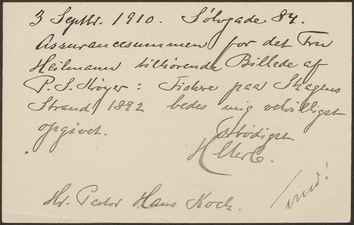 3 Septbr. 1910. Sølvgade 84.
Assurancesummen for det Fru
Heilmann tilhørende Billede af
P. S. Krøyer: Fiskere paa Skagens
Strand 1892 bedes mig velvilligst
opgivet.
Ærbødigst
Hr. Pastor Hans Koch.